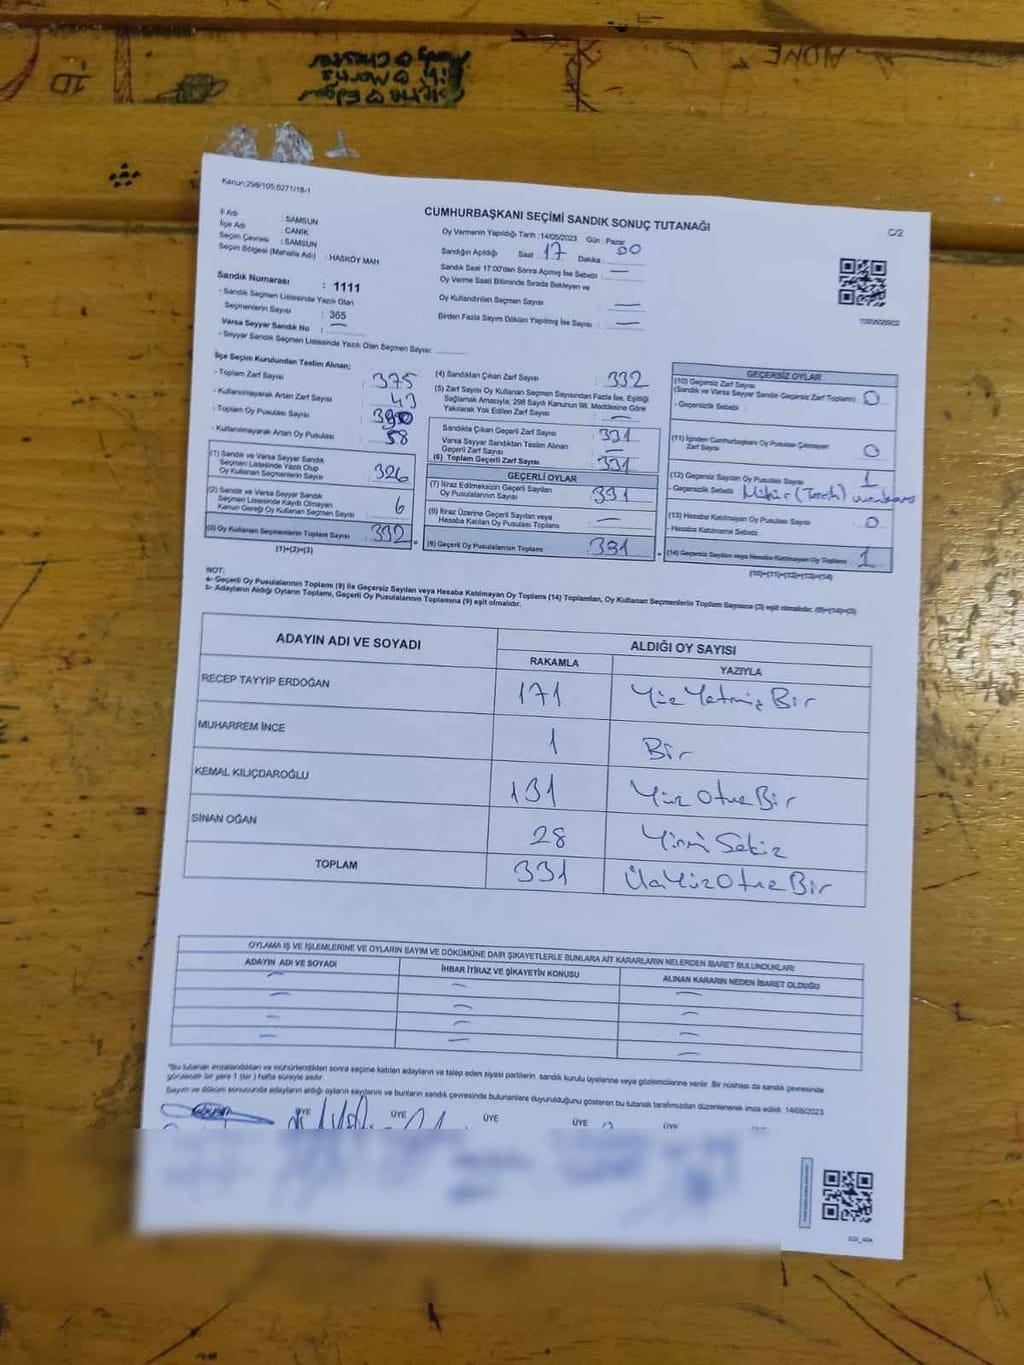 Kanun:298/105,6271/18-1
CUMHURBAŞKANI SEÇİMİ SANDIK SONUÇ TUTANAĞI
İl Adı : SAMSUN
İlçe Adı : CANİK
Seçim Çevresi : SAMSUN
Seçim Bölgesi (Mahalle Adı) : HASKÖY MAH
Oy Vermenin Yapıldığı Tarih :14/05/2023 Gün : Pazar
Sandığın Açıldığı Saat : 17 Dakika : 00
Sandık Saat 17:00'dan Sonra Açılmış İse Sebebi : —
Oy Verme Saati Bitiminde Sırada Bekleyen ve
Oy Kullandırılan Seçmen Sayısı : —
Birden Fazla Sayım Döküm Yapılmış İse Sayısı : —
Sandık Numarası : 1111
- Sandık Seçmen Listesinde Yazılı Olan
Seçmenlerin Sayısı : 365
Varsa Seyyar Sandık No : —
- Seyyar Sandık Seçmen Listesinde Yazılı Olan Seçmen Sayısı: ............
İlçe Seçim Kurulundan Teslim Alınan;
- Toplam Zarf Sayısı : 375
- Kullanılmayarak Artan Zarf Sayısı : 43
- Toplam Oy Pusulası Sayısı :
- Kullanılmayarak Artan Oy Pusulası : 58
(1) Sandık ve Varsa Seyyar Sandık
Seçmen Listesinde Yazılı Olup
Oy Kullanan Seçmenlerin Sayısı : 326
(2) Sandık ve Varsa Seyyar Sandık
Seçmen Listesinde Kaydı Olmayan
Kanun Gereği Oy Kullanan Seçmen Sayısı : 6
(3) Oy Kullanan Seçmenlerin Toplam Sayısı : 332
(1)+(2)=(3)
(4) Sandıktan Çıkan Zarf Sayısı : 332
(5) Zarf Sayısı Oy Kullanan Seçmen Sayısından Fazla İse, Eşitliği
Sağlamak Amacıyla, 298 Sayılı Kanunun 98. Maddesine Göre
Yakılarak Yok Edilen Zarf Sayısı : —
Sandıkta Çıkan Geçerli Zarf Sayısı : 331
Varsa Seyyar Sandıktan Teslim Alınan
Geçerli Zarf Sayısı : —
(6) Toplam Geçerli Zarf Sayısı : 331
GEÇERLİ OYLAR
(7) İtiraz Edilmeksizin Geçerli Sayılan
Oy Pusulalarının Sayısı : 331
(8) İtiraz Üzerine Geçerli Sayılan veya
Hesaba Katılan Oy Pusulası Toplamı : —
(9) Geçerli Oy Pusulalarının Toplamı : 331
GEÇERSİZ OYLAR
(10) Geçersiz Zarf Sayısı
(Sandık ve Varsa Seyyar Sandık Geçersiz Zarf Toplamı) : 0
- Geçersizlik Sebebi :
(11) İçinden Cumhurbaşkanı Oy Pusulası Çıkmayan
Zarf Sayısı : 0
(12) Geçersiz Sayılan Oy Pusulası Sayısı : 1
- Geçersizlik Sebebi : Mühür
(13) Hesaba Katılmayan Oy Pusulası Sayısı : 0
- Hesaba Katılmama Sebebi :
(14) Geçersiz Sayılan veya Hesaba Katılmayan Oy Toplamı : 1
(10)+(11)+(12)+(13)=(14)
NOT:
a- Geçerli Oy Pusulalarının Toplamı (9) ile Geçersiz Sayılan veya Hesaba Katılmayan Oy Toplamı (14) Toplamları, Oy Kullanan Seçmenlerin Toplam Sayısına (3) eşit olmalıdır. (9)+(14)=(3)
b- Adayların Aldığı Oyların Toplamı, Geçerli Oy Pusulalarının Toplamına (9) eşit olmalıdır.
ADAYIN ADI VE SOYADI ALDIĞI OY SAYISI
RAKAMLA YAZIYLA
RECEP TAYYİP ERDOĞAN 171 Yüz Yetmiş Bir
MUHARREM İNCE 1 Bir
KEMAL KILIÇDAROĞLU 131 Yüz Otuz Bir
SİNAN OĞAN 28 Yirmi Sekiz
TOPLAM 331 Üç Yüz Otuz Bir
OYLAMA İŞ VE İŞLEMLERİNE VE OYLARIN SAYIM VE DÖKÜMÜNE DAİR ŞİKAYETLERLE BUNLARA AİT KARARLARIN NELERDEN İBARET BULUNDUKLARI
ADAYIN ADI VE SOYADI İHBAR İTİRAZ VE ŞİKAYETİN KONUSU ALINAN KARARIN NEDEN İBARET OLDUĞU
*Bu tutanak imzalandıktan ve mühürlendikten sonra seçime katılan adayların ve talep eden siyasi partilerin sandık kurulu üyelerine veya gözlemcilerine verilir. Bir nüshası da sandık çevresinde
görülecek bir yere 1 (bir) hafta süreyle asılır.
Sayım ve döküm sonucunda adayların aldığı oyların sayılarını ve bunların sandık çevresinde bulunanlara duyurulduğunu gösteren bu tutanak tarafımızdan düzenlenerek imza edildi. 14/05/2023
ÜYE ÜYE ÜYE ÜYE ÜYE